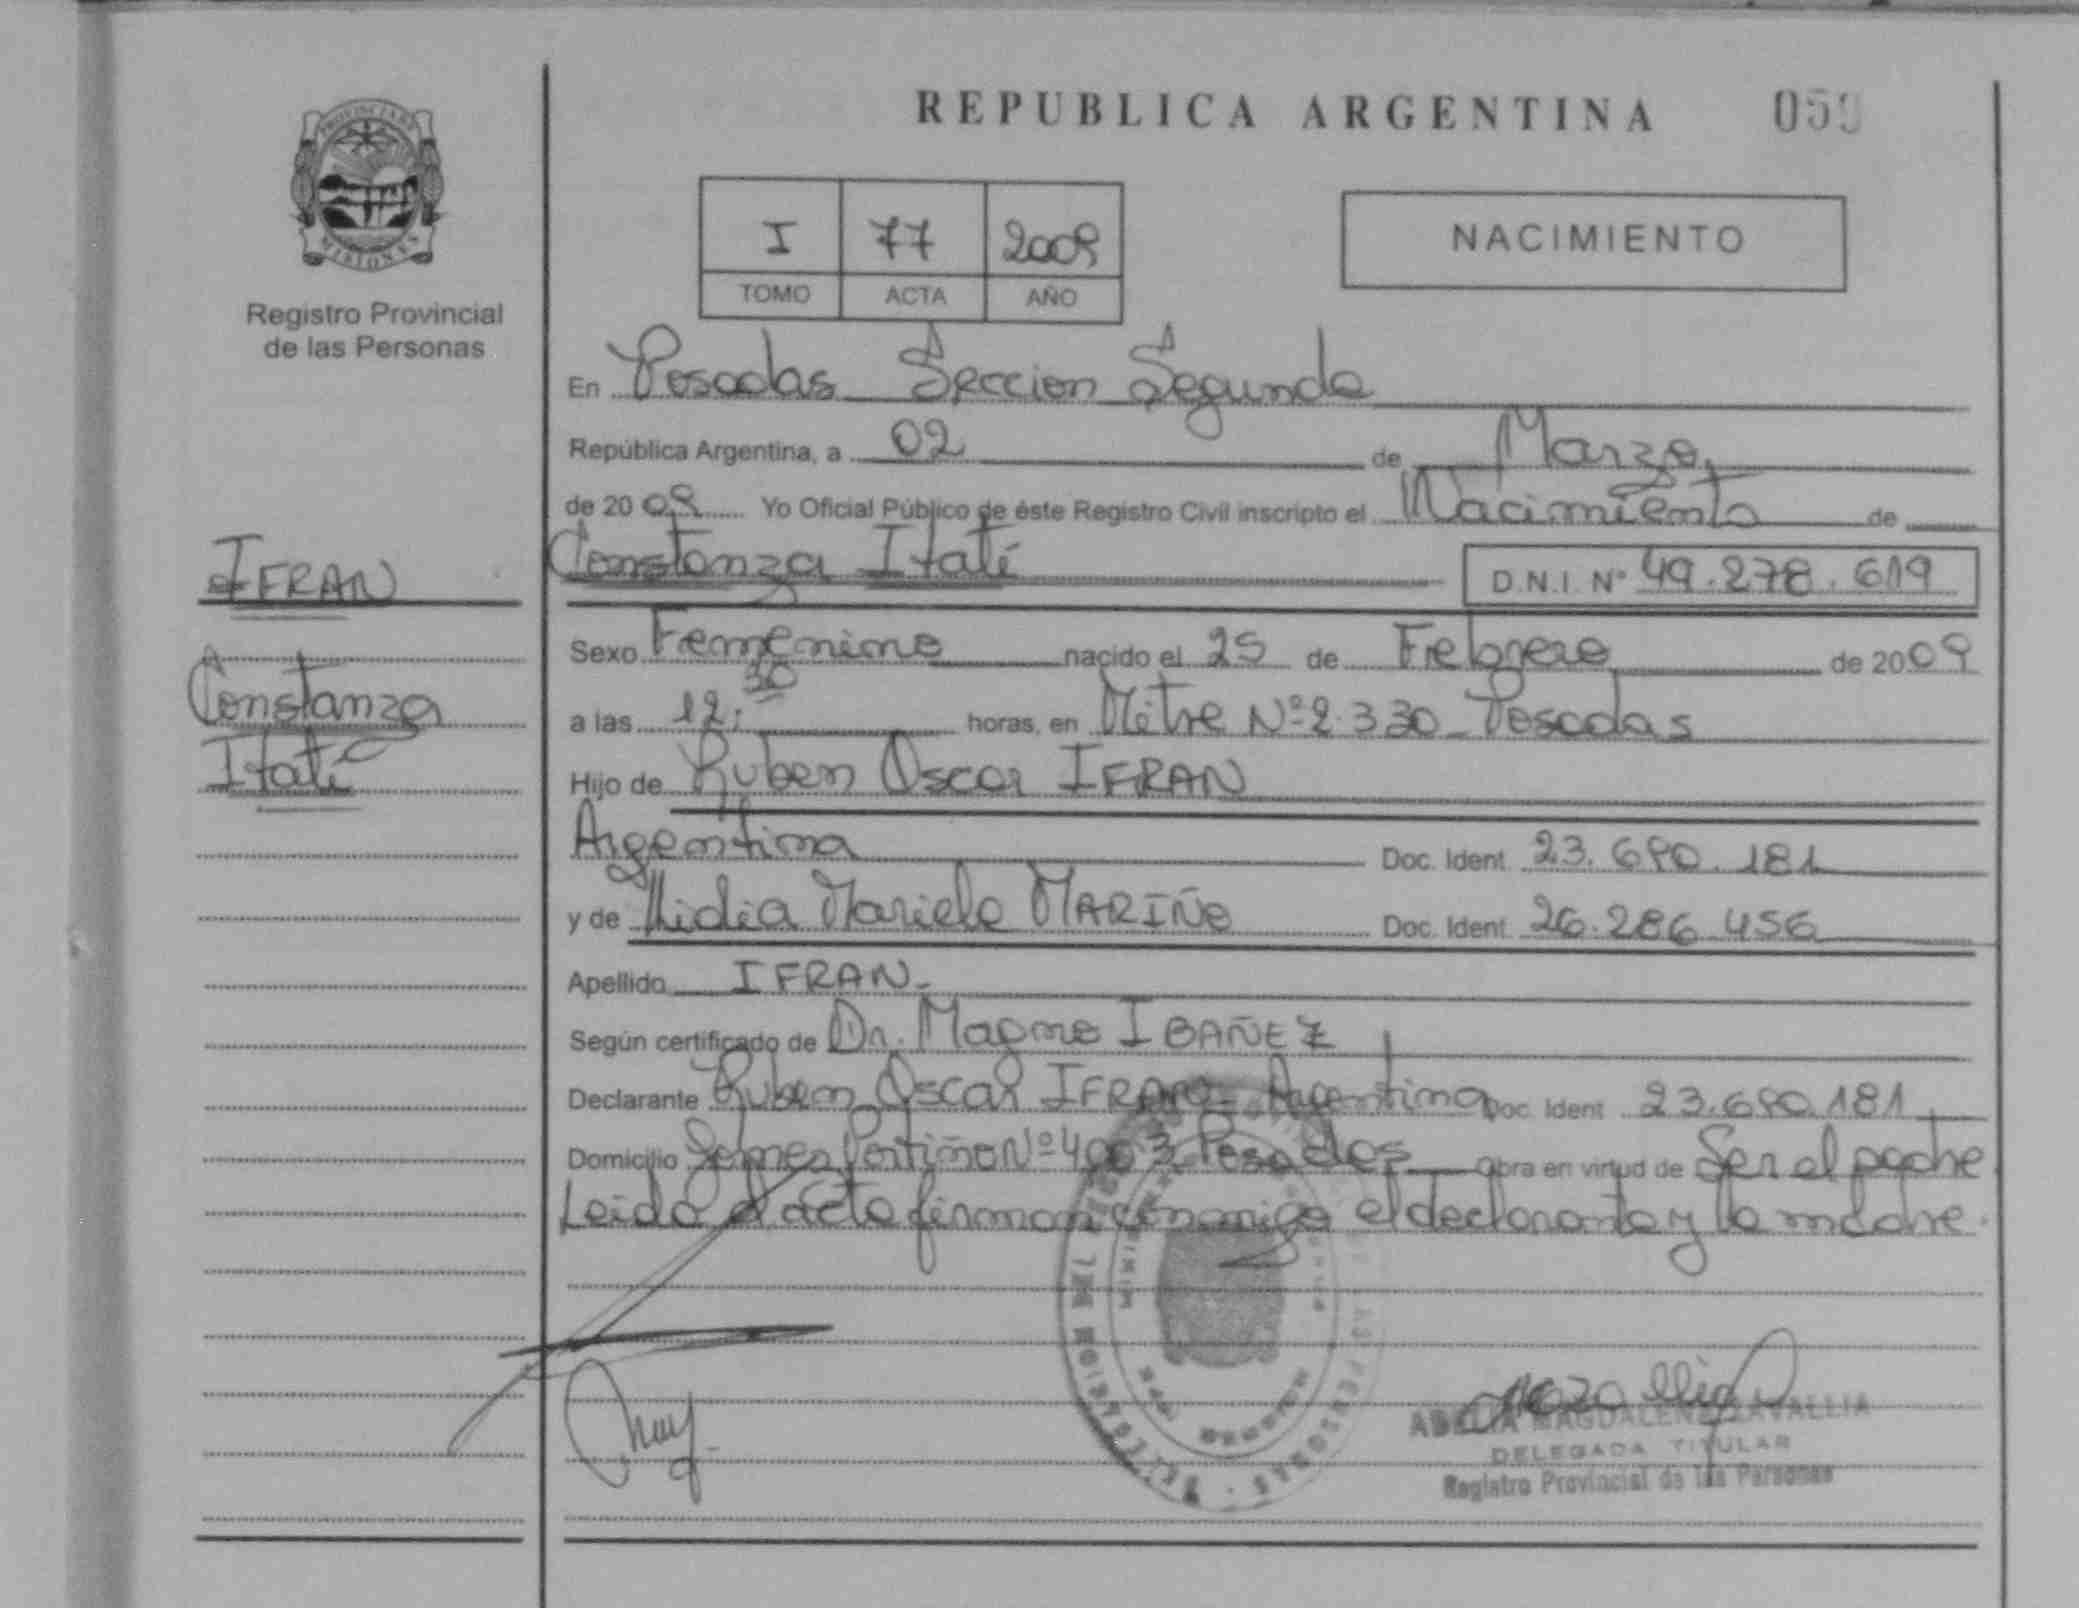 REPUBLICA ARGENTINA
PROVINCIA DE MISIONES
Registro Provincial
de las Personas
I 77 2009
TOMO ACTA AÑO
NACIMIENTO
En Posadas Seccion Segunda
República Argentina, a 02 de Marzo
de 2009 Yo Oficial Público de éste Registro Civil inscripto el Nacimiento de
IFRAN
Constanza Itatí D.N.I. Nº 49.278.619
Sexo Femenino nacido el 25 de Febrero de 2009
Constanza
a las 12:30 horas, en Mitre Nº 2.330 Posadas
Itatí
Hijo de Ruben Oscar IFRAN
Argentina Doc. Ident. 23.690.181
y de Lidia Mariela MARIÑO Doc. Ident. 26.286.456
Apellido IFRAN.
Según certificado de Dr. Magno IBAÑEZ
Declarante Ruben Oscar IFRAN Argentina Doc. Ident. 23.690.181
Domicilio Nº Posadas Obra en virtud de Ser el padre
Leida el acta firman conmigo el declarante y la madre.
MAGDALENA ZAVALLIA
DELEGADA TITULAR
Registro Provincial de las Personas